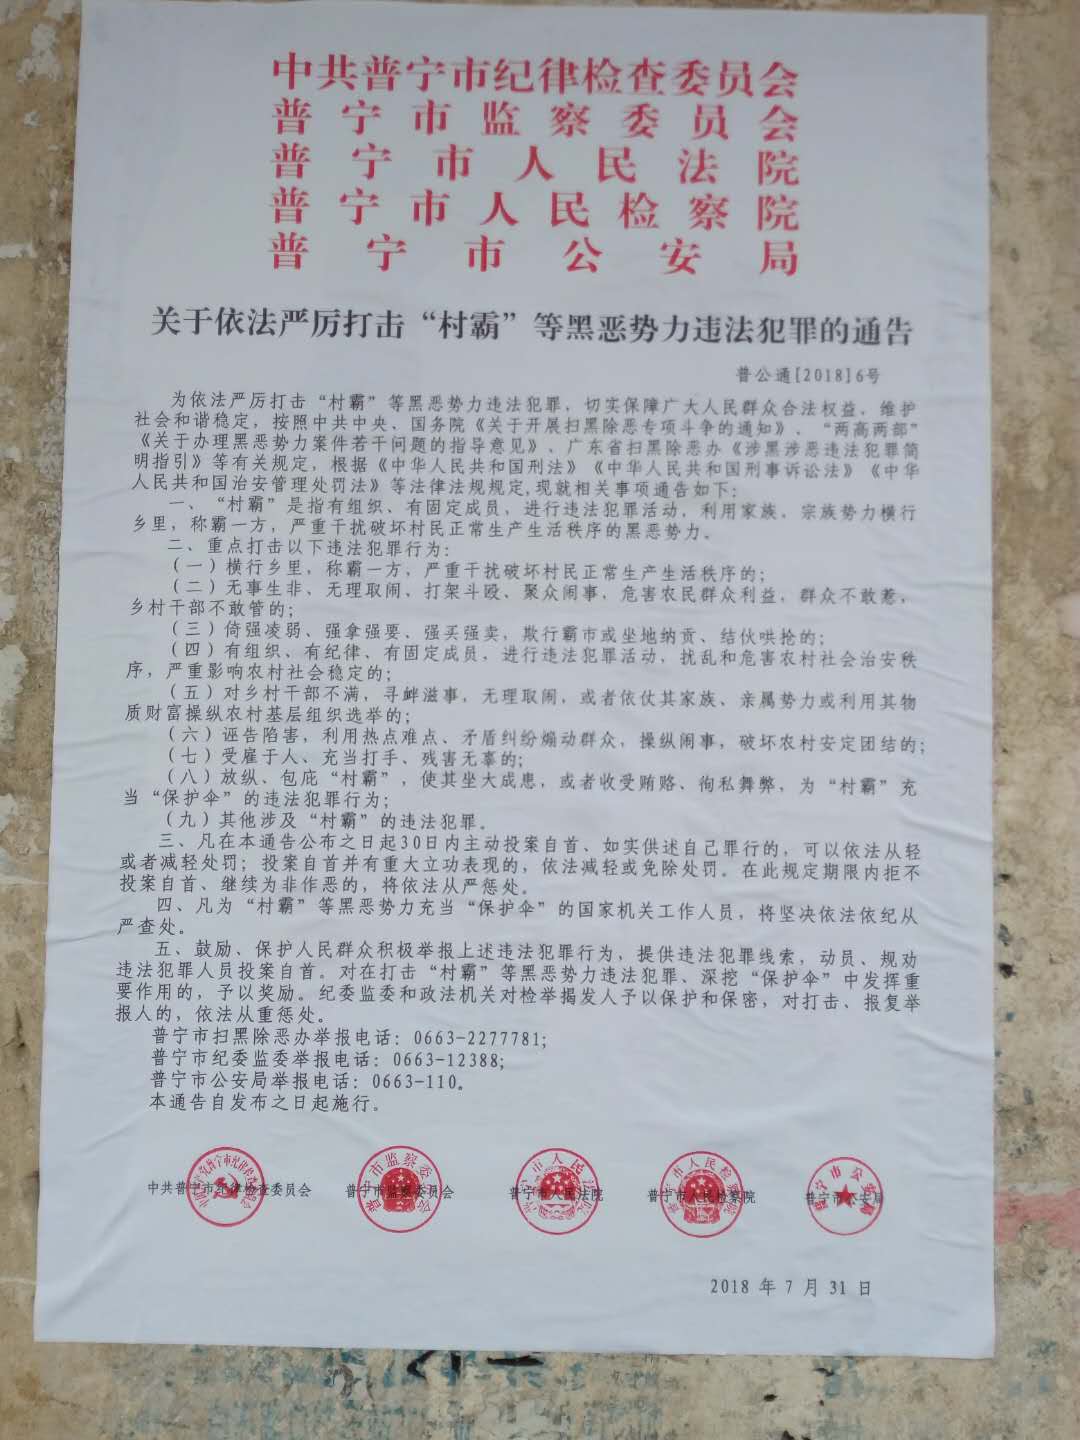 中共普宁市纪律检查委员会
普宁市监察委员会
普宁市人民法院
普宁市人民检察院
普宁市公安局
关于依法严厉打击“村霸”等黑恶势力违法犯罪的通告
普公通[2018]6号
为依法严厉打击“村霸”等黑恶势力违法犯罪，切实保障广大人民群众合法权益，维护
社会和谐稳定，按照中共中央、国务院《关于开展扫黑除恶专项斗争的通知》、“两高两部”
《关于办理黑恶势力案件若干问题的指导意见》、广东省扫黑除恶办《涉黑涉恶违法犯罪简
明指引》等有关规定，根据《中华人民共和国刑法》《中华人民共和国刑事诉讼法》《中华
人民共和国治安管理处罚法》等法律法规规定，现就相关事项通告如下：
一、“村霸”是指有组织、有固定成员，进行违法犯罪活动，利用家族、宗族势力横行
乡里，称霸一方，严重干扰破坏村民正常生产生活秩序的黑恶势力。
二、重点打击以下违法犯罪行为：
（一）横行乡里，称霸一方，严重干扰破坏村民正常生产生活秩序的；
（二）无事生非、无理取闹、打架斗殴、聚众闹事，危害农民群众利益，群众不敢惹，
乡村干部不敢管的；
（三）倚强凌弱、强拿强要、强买强卖，欺行霸市或坐地纳贡、结伙哄抢的；
（四）有组织、有纪律、有固定成员，进行违法犯罪活动，扰乱和危害农村社会治安秩
序，严重影响农村社会稳定的；
（五）对乡村干部不满，寻衅滋事，无理取闹，或者依仗其家族、亲属势力或利用其物
质财富操纵农村基层组织选举的；
（六）诬告陷害，利用热点难点、矛盾纠纷煽动群众，操纵闹事，破坏农村安定团结的；
（七）受雇于人、充当打手、残害无辜的；
（八）放纵、包庇“村霸”，使其坐大成患，或者收受贿赂、徇私舞弊，为“村霸”充
当“保护伞”的违法犯罪行为；
（九）其他涉及“村霸”的违法犯罪。
三、凡在本通告公布之日起30日内主动投案自首、如实供述自己罪行的，可以依法从轻
或者减轻处罚；投案自首并有重大立功表现的，依法减轻或免除处罚。在此规定期限内拒不
投案自首、继续为非作恶的，将依法从严惩处。
四、凡为“村霸”等黑恶势力充当“保护伞”的国家机关工作人员，将坚决依法依纪从
严查处。
五、鼓励、保护人民群众积极举报上述违法犯罪行为，提供违法犯罪线索，动员、规劝
违法犯罪人员投案自首。对在打击“村霸”等黑恶势力违法犯罪、深挖“保护伞”中发挥重
要作用的，予以奖励。纪委监委和政法机关对检举揭发人予以保护和保密，对打击、报复举
报人的，依法从重惩处。
普宁市扫黑除恶办举报电话：0663-2277781；
普宁市纪委监委举报电话：0663-12388；
普宁市公安局举报电话：0663-110。
本通告自发布之日起施行。
中共普宁市纪律检查委员会 普宁市监察委员会 普宁市人民法院 普宁市人民检察院 普宁市公安局
2018 年 7 月 31 日